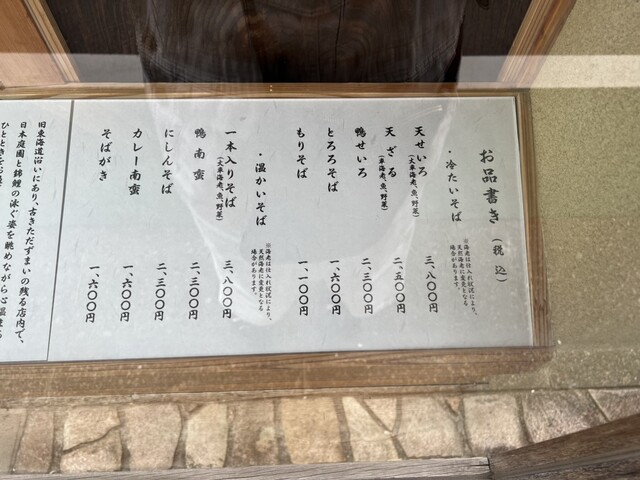 お品書き（税込）
・冷たいそば
※海老は仕入れ状況により、
天然海老に変更となる
場合があります。
天せいろ
（大車海老、魚、野菜）
三、八〇〇円
天ざる
（車海老、魚、野菜）
二、五〇〇円
鴨せいろ
二、三〇〇円
とろろそば
一、六〇〇円
もりそば
一、一〇〇円
・温かいそば
※海老は仕入れ状況により、
天然海老に変更となる
場合があります。
一本入りそば
（大車海老、魚、野菜）
三、八〇〇円
鴨南蛮
二、三〇〇円
にしんそば
二、三〇〇円
カレー南蛮
一、六〇〇円
そばがき
一、六〇〇円
旧東海道沿いにあり、古きただずまいの残る店内で、
日本庭園と錦鯉の泳ぐ姿を眺めながら心温まる